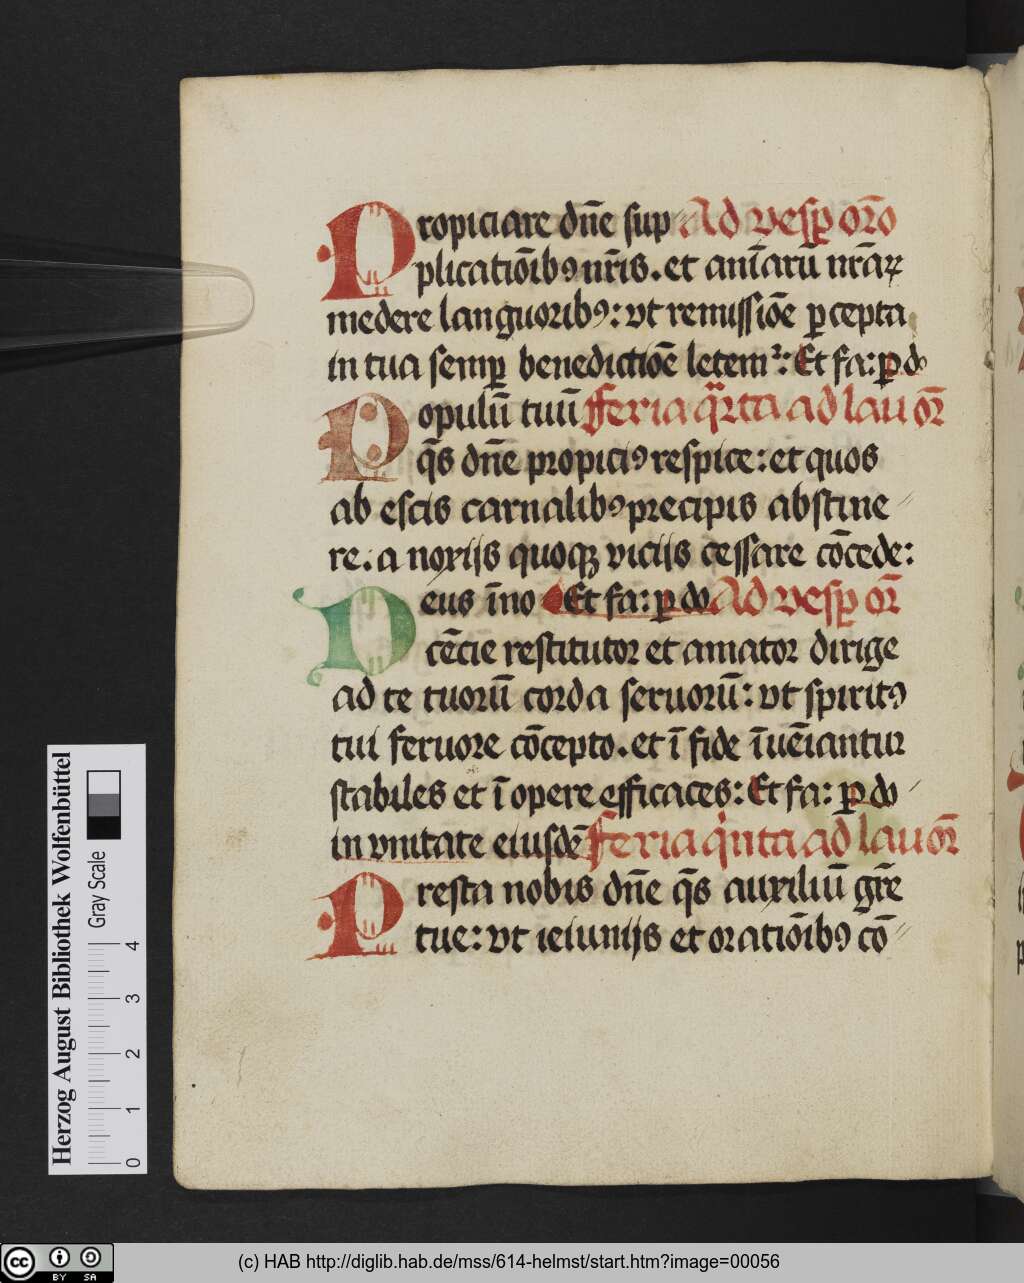 Propiciare dn̄e sup⸗ Ad vesꝑ or̄o
plicatiōibꝫ nr̄is. et ani̅arū nr̄aꝝ
medere languoribꝫ: vt remissiōe ꝑcepta
in tua semꝑ benedictiōe letemᷣ: Et fa: ꝑ do
Populū tuū fferia qᷓrta ad lau or̄
q̄s dn̄e propiciꝰ respice: et quos
ab escis carnalibꝫ precipis abstine⸗
re. a noxijs quoqꝫ vicijs cessare cōcede:
Deus īno Et fa: ꝑ do Ad vesꝑ or̄
cēcie restitutor et amator dirige
ad te tuorū corda seruorū: vt spiritꝰ
tui feruore cōcepto. et ī fide īuēiantur
stabiles et ī opere efficaces: Et fa: ꝑ do⸗
in vnitate eiusdē fferia qͥnta ad lau or̄
Presta nobis dn̄e q̄s auxiliū gr̄e
tue: vt ieiunijs et oratiōibꝫ cō⸗
Herzog August Bibliothek Wolfenbüttel
Gray Scale
0 1 2 3 4
cc BY SA
(c) HAB http://diglib.hab.de/mss/614-helmst/start.htm?image=00056